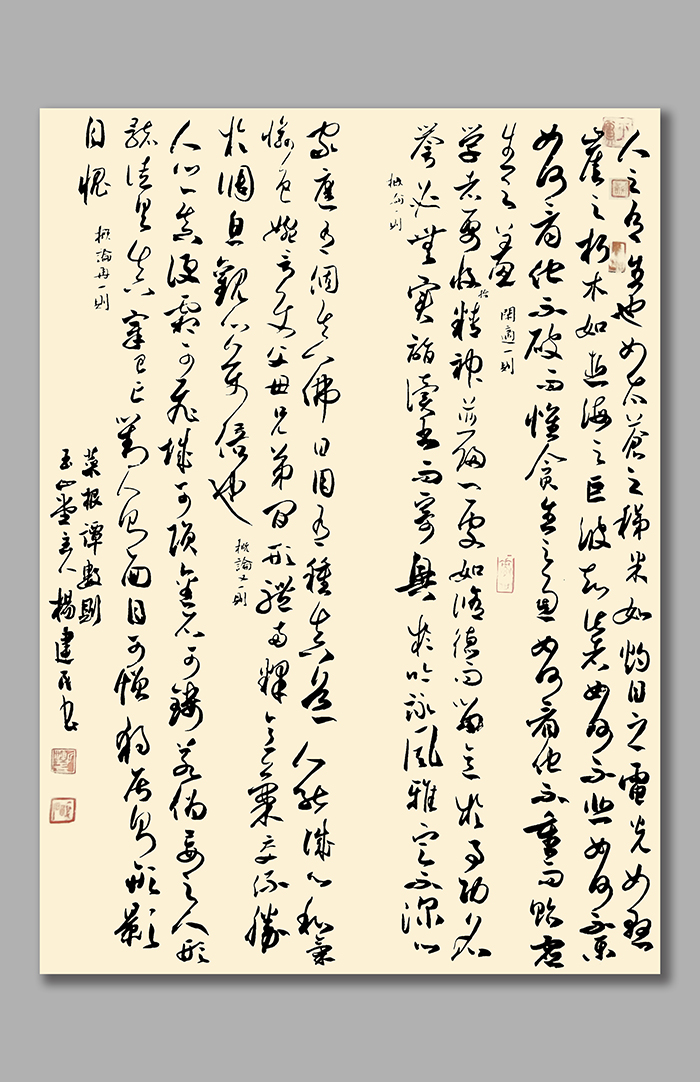 人之有生也如太蒼之稊米如灼目之電光如懸
崖之朽木如逝海之巨波知此者如何不悲如何不樂
如何看他不破而懷貪生之慮如何看他不重而貽虛
生之羞 閑適一則
学者要收拾精神并歸一處如脩德而留意於事功名
譽必無實詣讀書而寄興於吟詠風雅定不深心
概論一則
家庭有個真佛日用有種真道人能誠心和氣
愉色婉言使父母兄弟間形體兩釋意氣交流勝
於調息觀心萬倍也 概論又一則
人心一真便霜可飛城可隕金石可鏤若偽妄之人形
骸徒具真宰已亡對人則面目可憎獨居則形影
自愧 概論再一則
菜根譚數則
玉山堂主人楊建民書